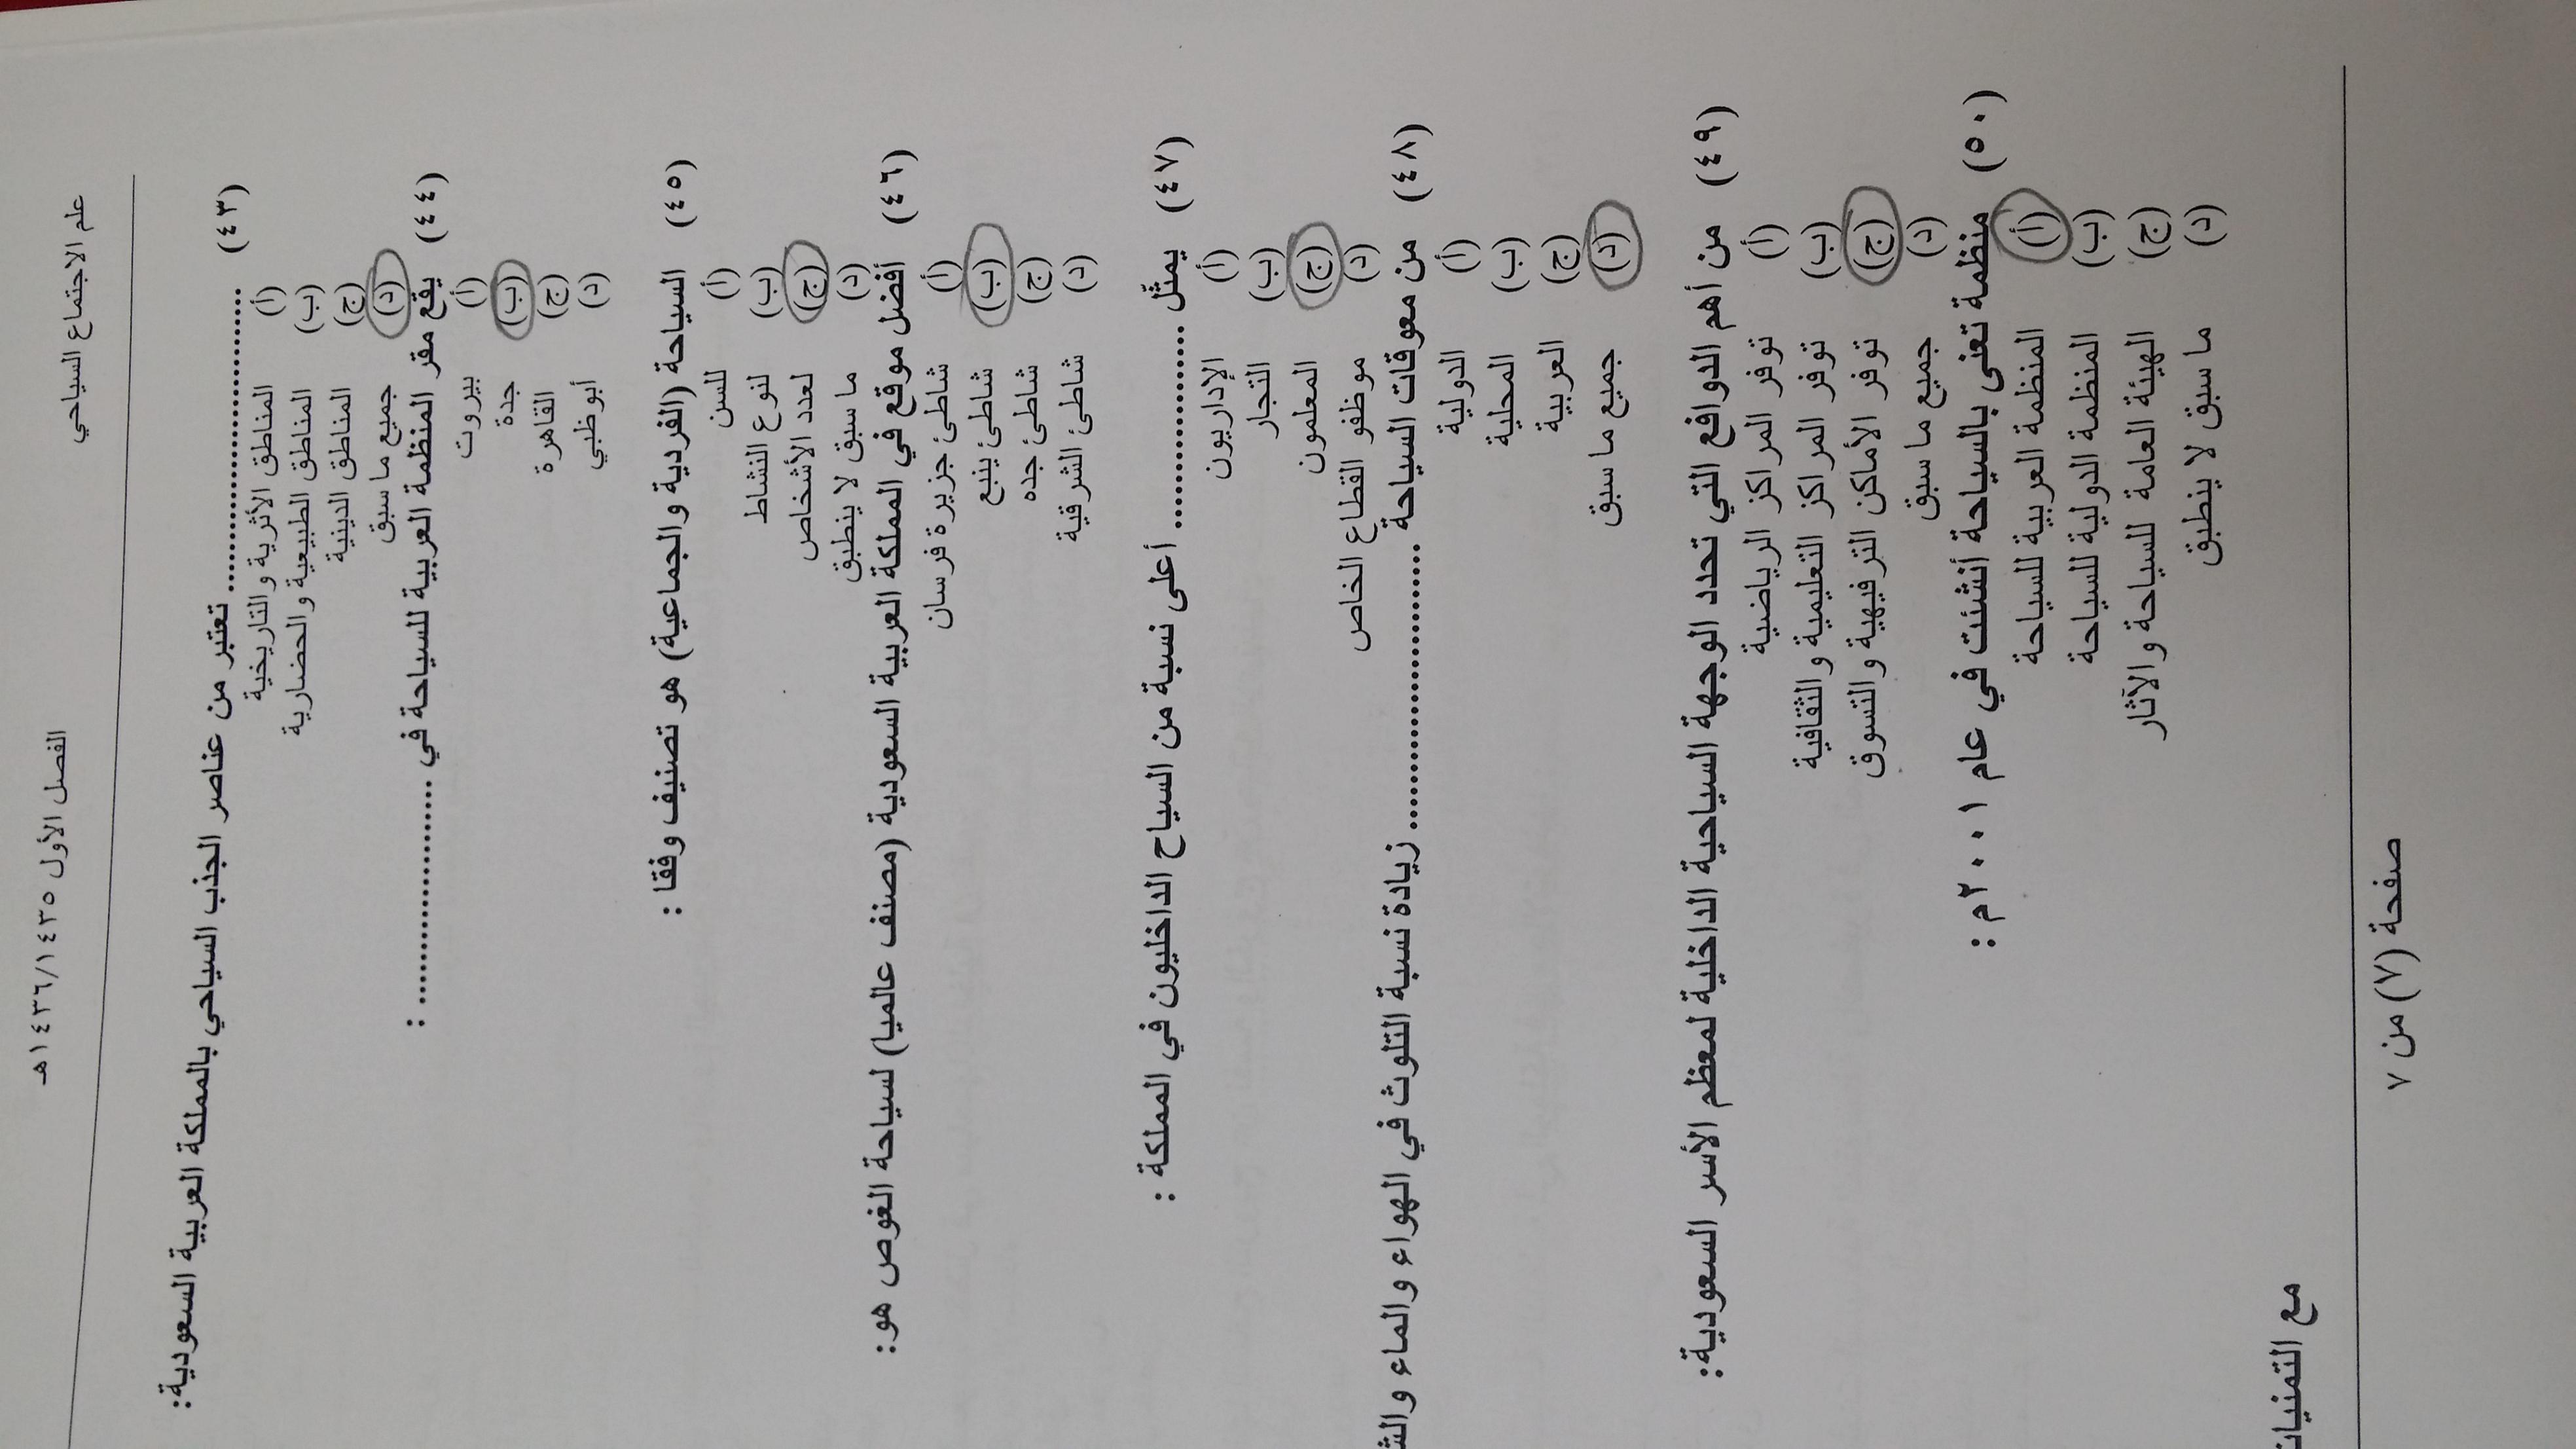 علم الاجتماع السياحي
الفصل الأول ١٤٣٦/١٤٣٥هـ
(٤٣) ........................ تعتبر من عناصر الجذب السياحي بالمملكة العربية السعودية:
(أ) المناطق الأثرية والتاريخية
(ب) المناطق الطبيعية والحضارية
(ج) المناطق الدينية
(د) جميع ما سبق
(٤٤) يقع مقر المنظمة العربية للسياحة في .................. :
(أ) بيروت
(ب) جدة
(ج) القاهرة
(د) أبوظبي
(٤٥) السياحة (الفردية والجماعية) هو تصنيف وفقا :
(أ) للسن
(ب) لنوع النشاط
(ج) لعدد الأشخاص
(د) ما سبق لا ينطبق
(٤٦) أفضل موقع في المملكة العربية السعودية (مصنف عالميا) لسياحة الغوص هو:
(أ) شاطئ جزيرة فرسان
(ب) شاطئ ينبع
(ج) شاطئ جده
(د) شاطئ الشرقية
(٤٧) يمثّل ................ أعلى نسبة من السياح الداخليون في المملكة :
(أ) الإداريون
(ب) التجار
(ج) المعلمون
(د) موظفو القطاع الخاص
(٤٨) من معوقات السياحة ........................ زيادة نسبة التلوث في الهواء والماء
(أ) الدولية
(ب) المحلية
(ج) العربية
(د) جميع ما سبق
(٤٩) من أهم الدوافع التي تحدد الوجهة السياحية الداخلية لمعظم الأسر السعودية:
(أ) توفر المراكز الرياضية
(ب) توفر المراكز التعليمية والثقافية
(ج) توفر الأماكن الترفيهية والتسوق
(د) جميع ما سبق
(٥٠) منظمة تعنى بالسياحة أنشئت في عام ٢٠٠١م :
(أ) المنظمة العربية للسياحة
(ب) المنظمة الدولية للسياحة
(ج) الهيئة العامة للسياحة والآثار
(د) ما سبق لا ينطبق
مع
صفحة (٧) من ٧